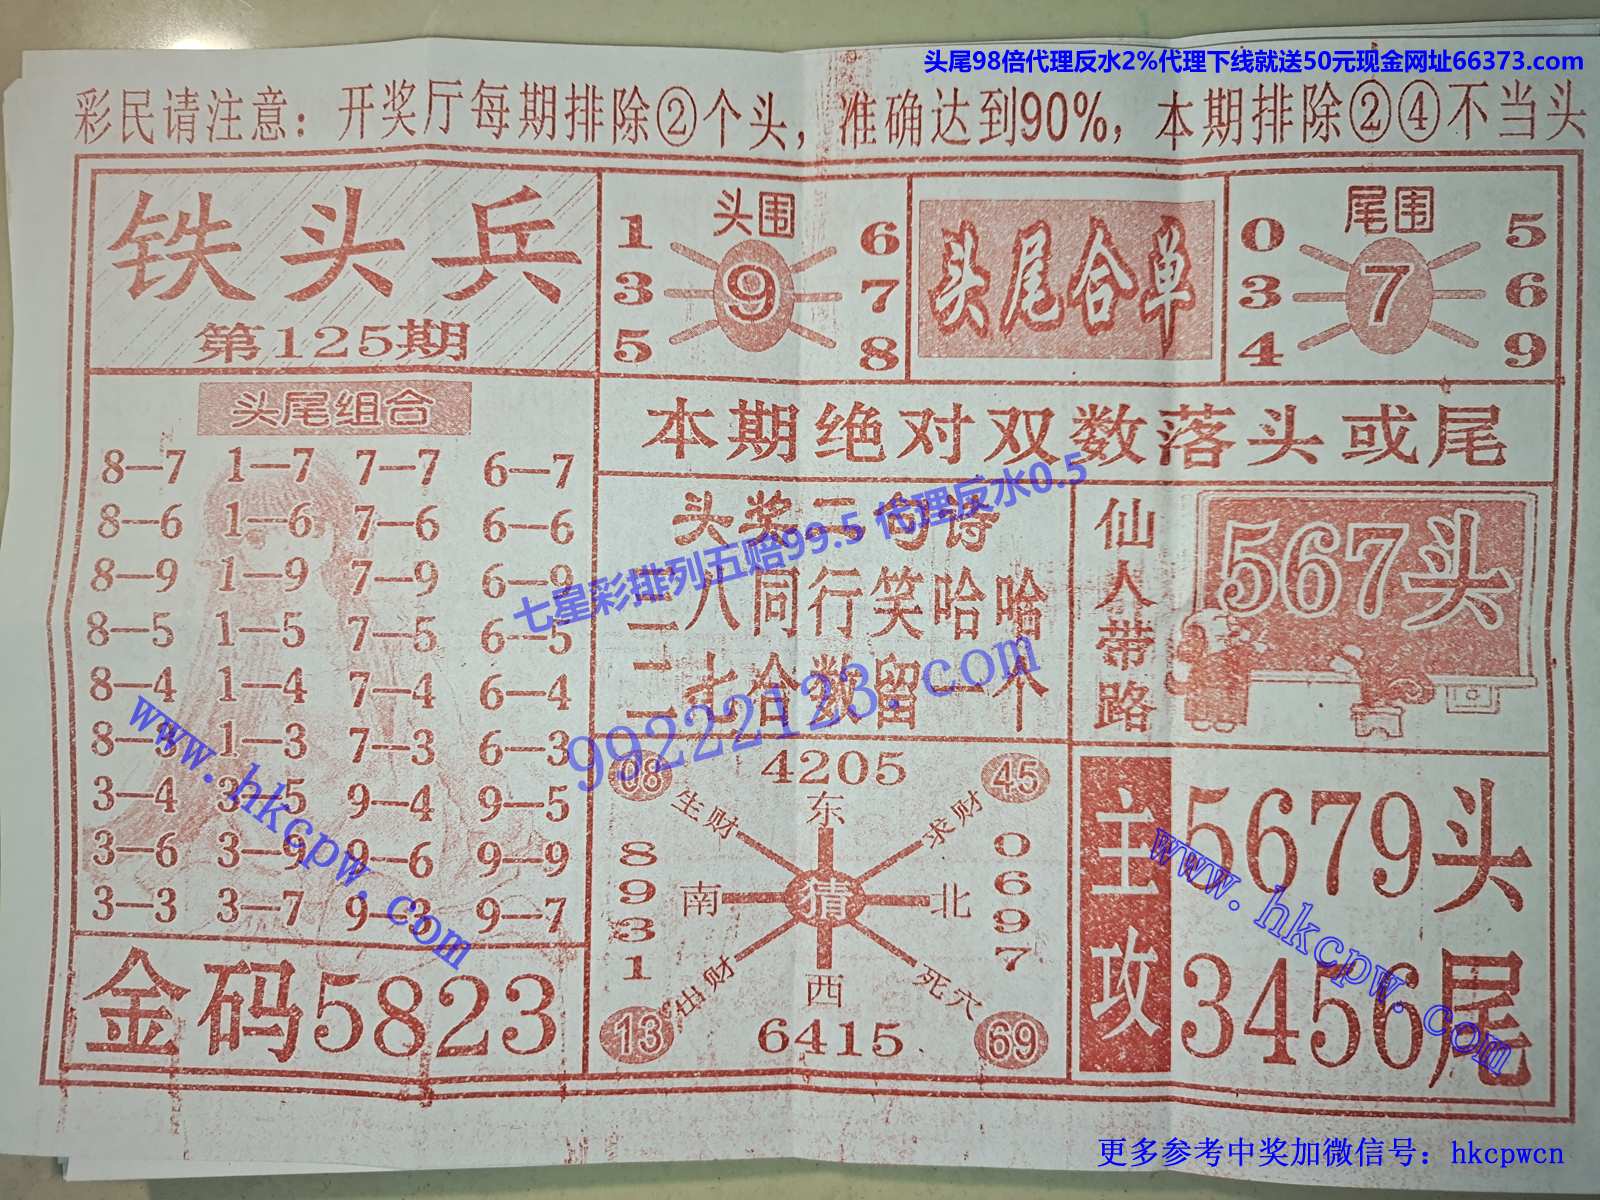 头尾98倍代理反水2%代理下线就送50元现金网址66373.com
彩民请注意：开奖厅每期排除②个头，准确达到90%，本期排除②④不当头
铁头兵
第125期
头围
1 6
3 9 7
5 8
头尾合单
尾围
0 5
3 7 6
4 9
头尾组合
8—7 1—7 7—7 6—7
8—6 1—6 7—6 6—6
8—9 1—9 7—9 6—9
8—5 1—5 7—5 6—5
8—4 1—4 7—4 6—4
8—3 1—3 7—3 6—3
3—4 3—5 9—4 9—5
3—6 3—9 9—6 9—9
3—3 3—7 9—3 9—7
金码5823
本期绝对双数落头或尾
头奖二句诗
三八同行笑哈哈
二七合数留一个
仙人带路
567头
08 4205 45
生财 东 求财
8931 南 猜 北 0697
出财 西 死穴
13 6415 69
主攻
5679头
3456尾
七星彩排列五赔99.5 代理反水0.5
99222123.com
www.hkcpw.com
www.hkcpw.com
更多参考中奖加微信号：hkcpwcn